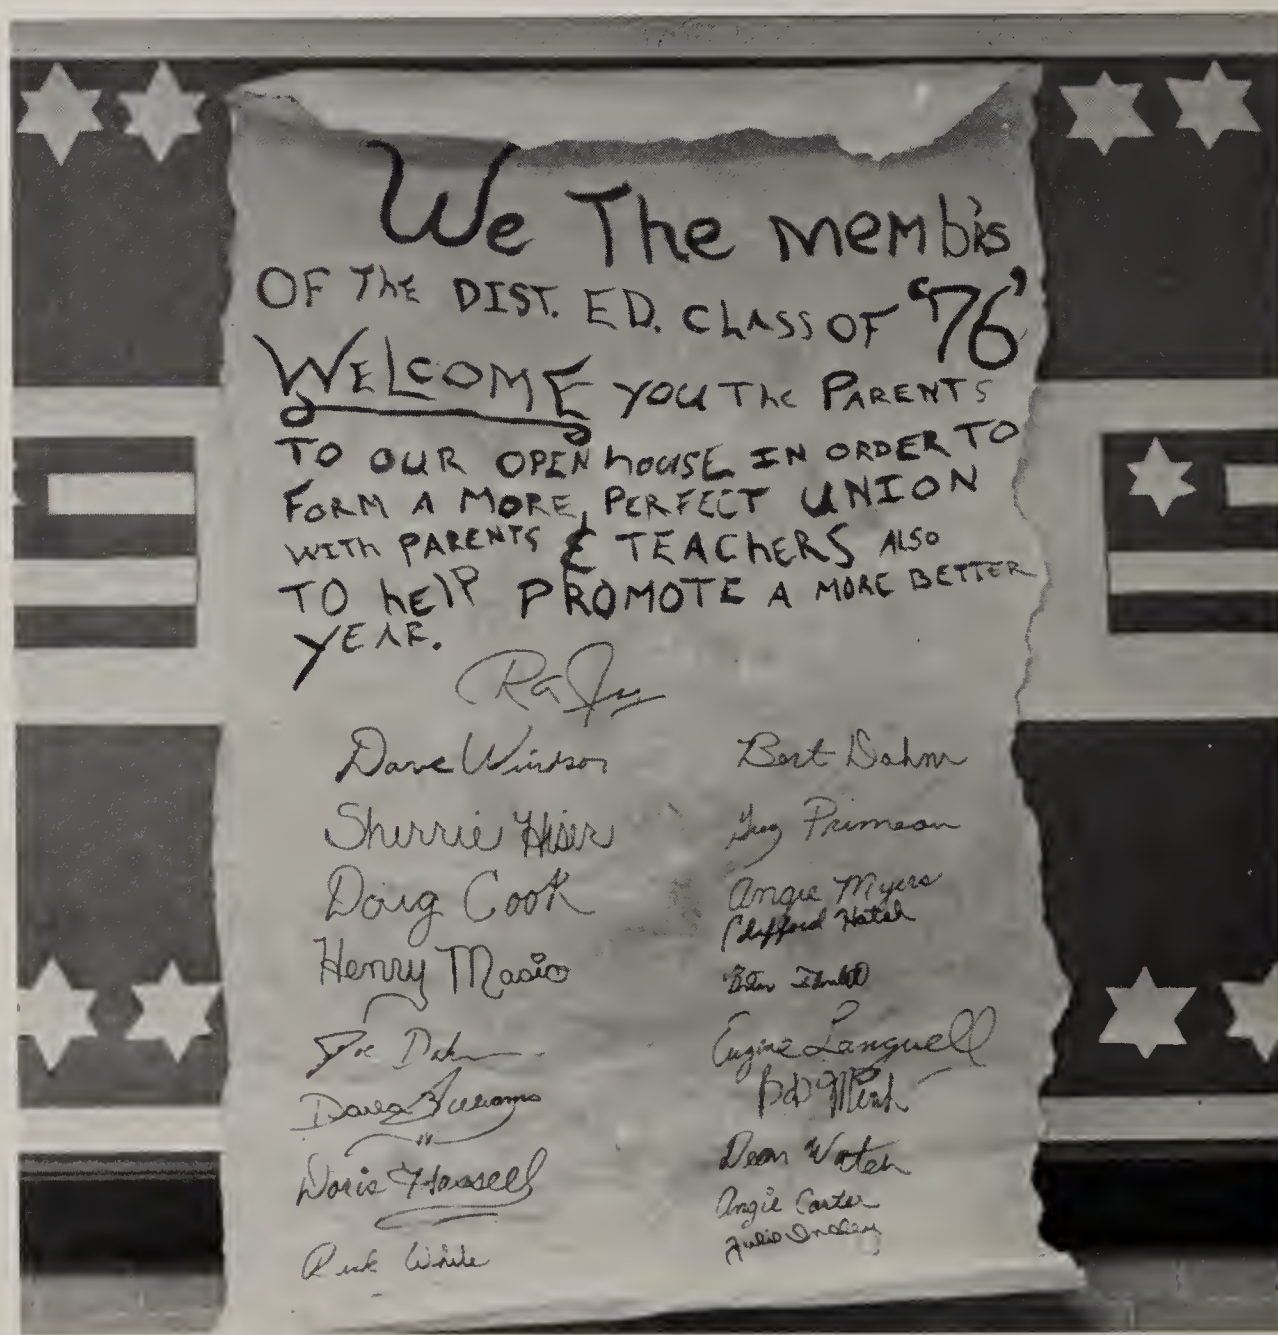 We The memb'rs
OF The DIST. ED. CLASS OF '76'
WELCOME YOU The PARENTS
TO OUR OPEN hOUSE IN ORDER TO
FORM A MORE PERFECT UNION
WITh PARENTS & TEAChERS ALSO
TO hELP PROMOTE A MORE BETTER
YEAR.
Dave Windsor
Sherrie Hiser
Doug Cook
Henry Masio
Joe Dahm
Williams
Doris Hassell
Rick White
Bert Dahm
Greg Primeau
Angie Myers
Clifford Hatch
Eugene Languell
Bob
Dean
Angie Carter
Julie